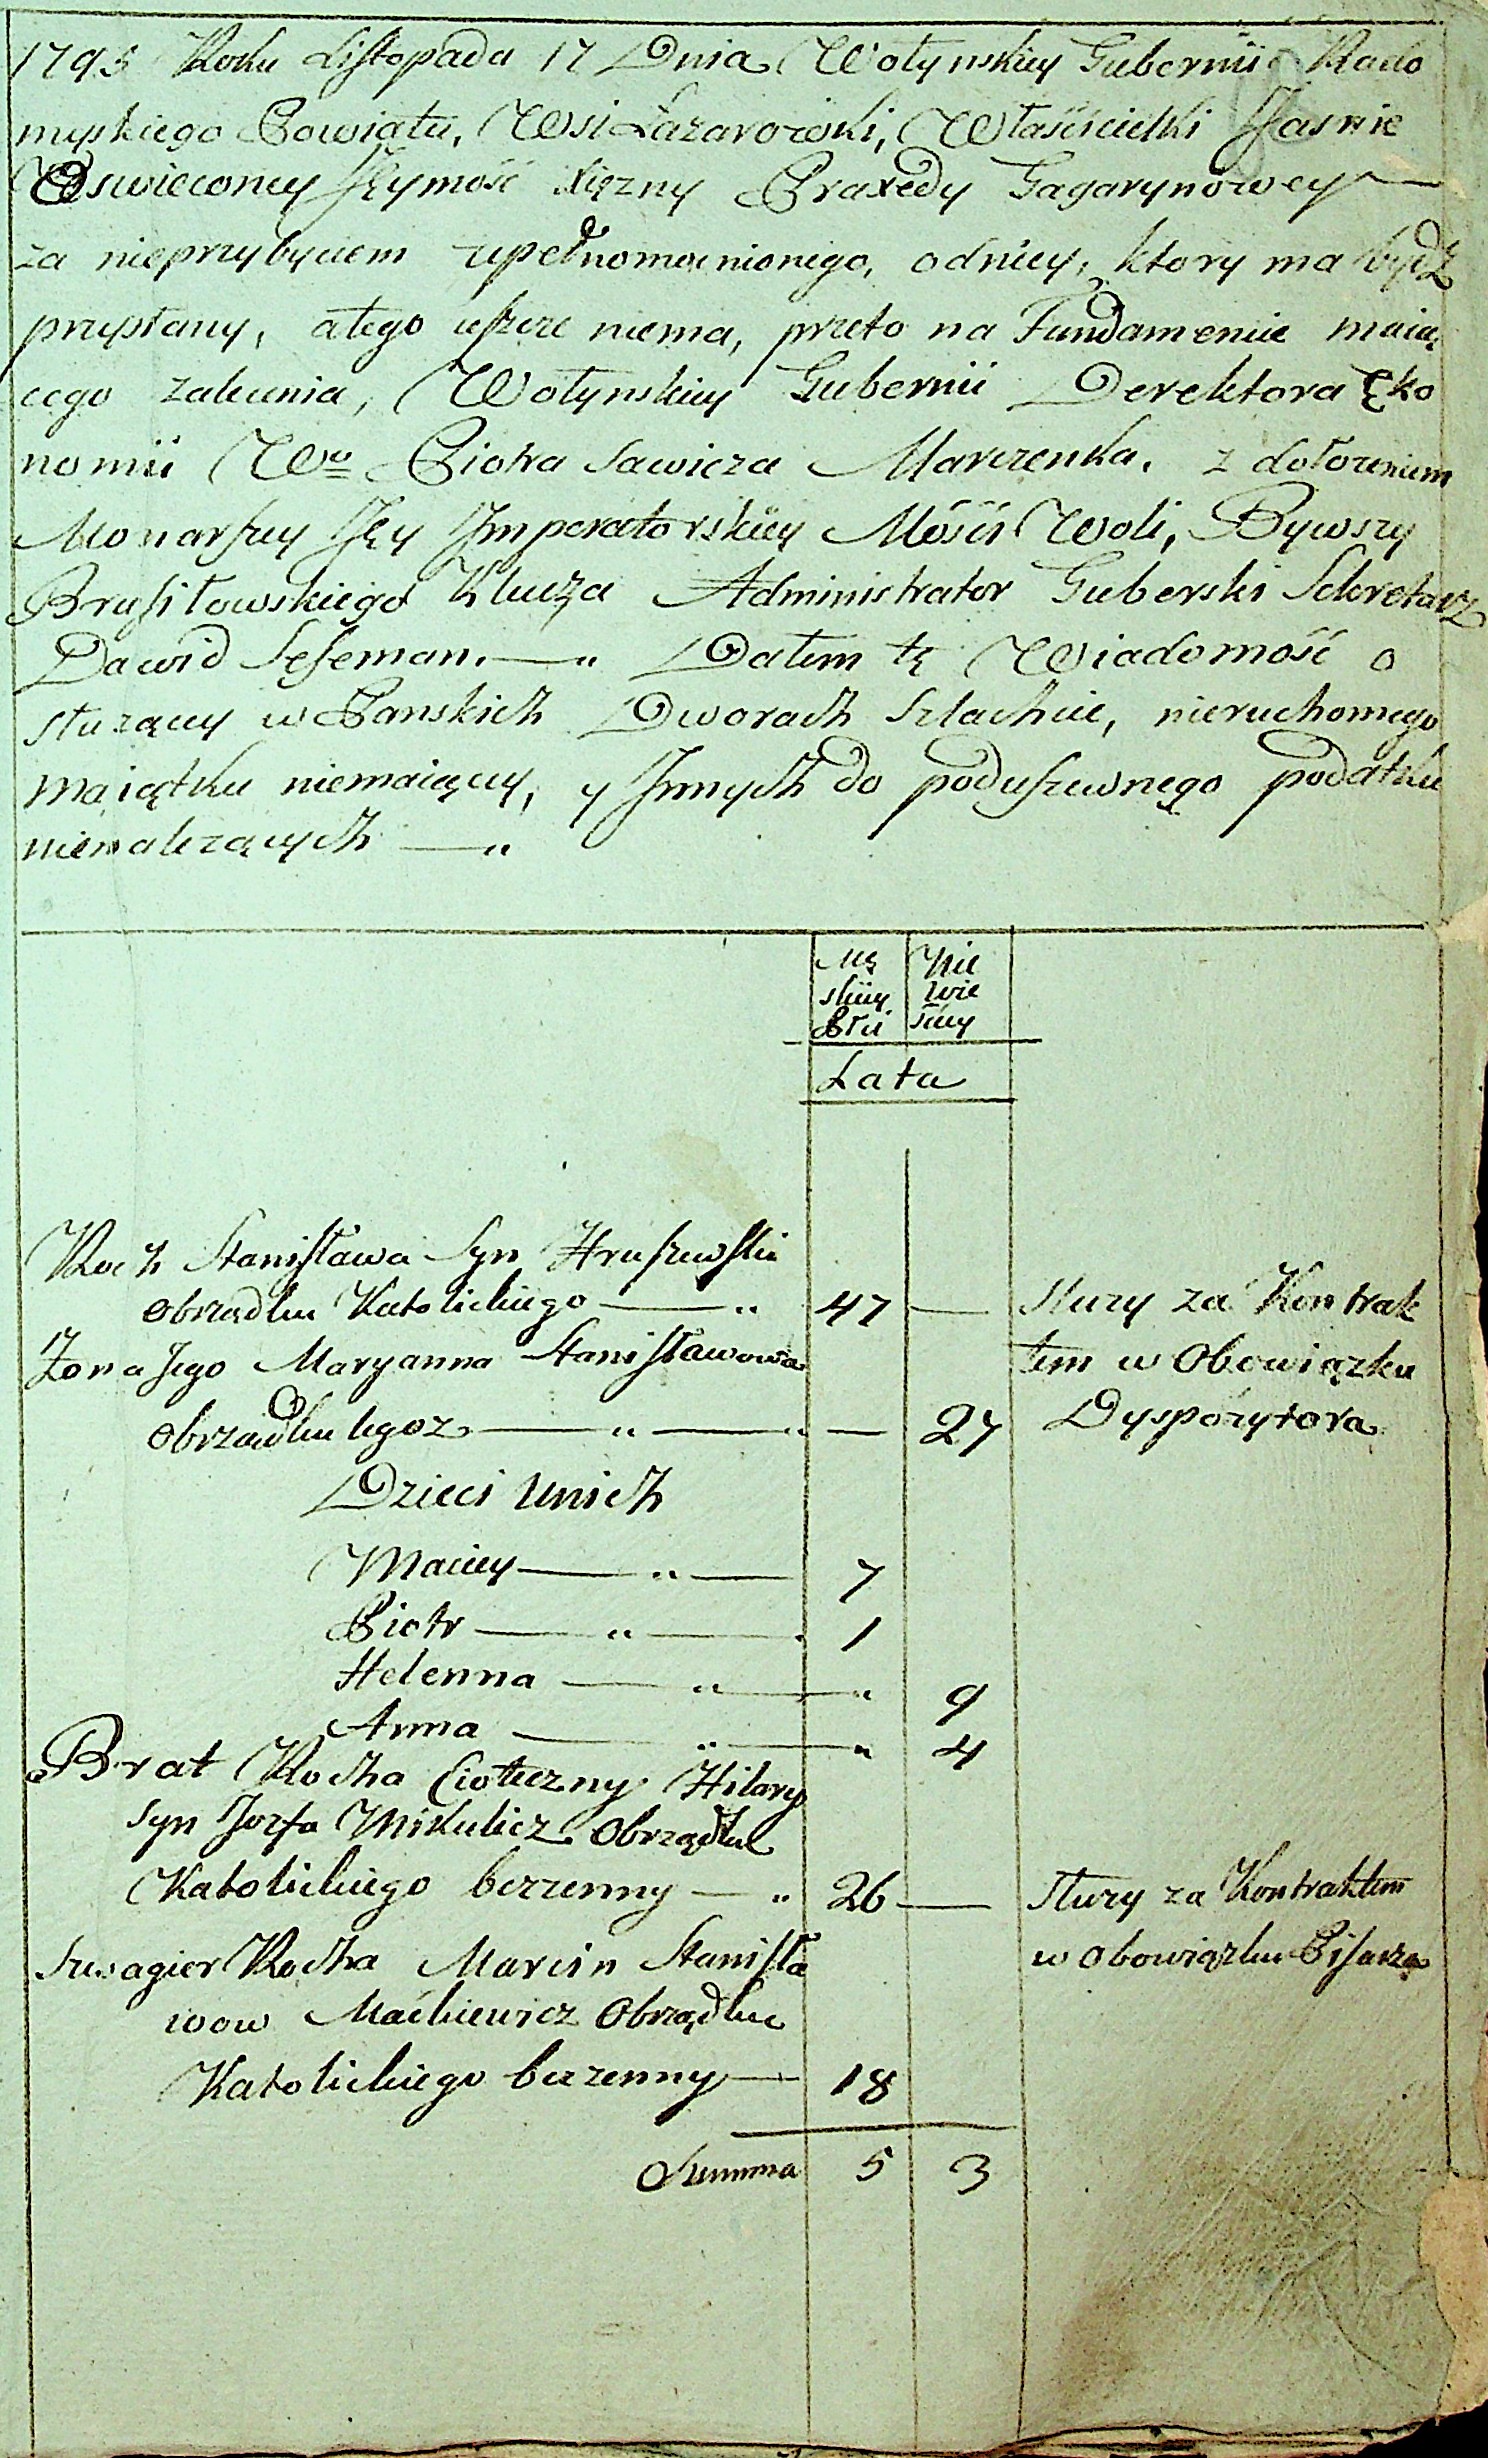 1795 Roku Listopada 17 Dnia Wołynskiey Gubernii Rado
myskiego Powiatu, Wsi Łazarowki, Właścicielki Jasnie
Oswieconey Jeymość Xiężny Praxedy Gagarynowey —
za nieprzybyciem upełnomocnionego, odniey, ktory ma bydź
przysłany, atego ieszcze niema, przeto na Fundamencie maią,
cego zalecenia, Wołynskiey Gubernii Derektora Eko
nomii Wo Piotra Sawicza Marczenka, z dołozeniem
Monarszey Jey Imperatorskiey Mości Woli, Bywszy
Brusiłowskiego Klucza Administrator Guberski Sekretarz
Dawid Seseman. — „ Dałem tę Wiadomość o
słuzącey w Panskich Dworach Szlachcie, nieruchomego
maiątku niemaiącey, y Jnnych do poduszewnego podatku
nienalezących — „
Mę Nie
skiey wie
Płci sciey
Lata
Roch Stanisława Syn Hruszewski
obrządku Katolickiego — „ 47 — Słuzy za Kontrak
Zona Jego Maryanna Stanisławowa tem w Obowiązku
obrządku tegoz — „ — „ — 27 Dyspozytora
Dzieci unich
Maciey — „ — 7
Piotr — „ — 1
Helenna — „ — „ 9
Anna — „ — „ 4
Brat Rocha Cioteczny Hilary
syn Jozfa Mikulicz Obrządku
Katolickiego bezzenny — „ 26 — Słuzy za Kontraktem
w obowiązku Pisarza
Szwagier Rocha Marcin Stanisła
wow Maćkiewicz Obrządku
Katolickiego bezzenny — 18
Summa 5 3